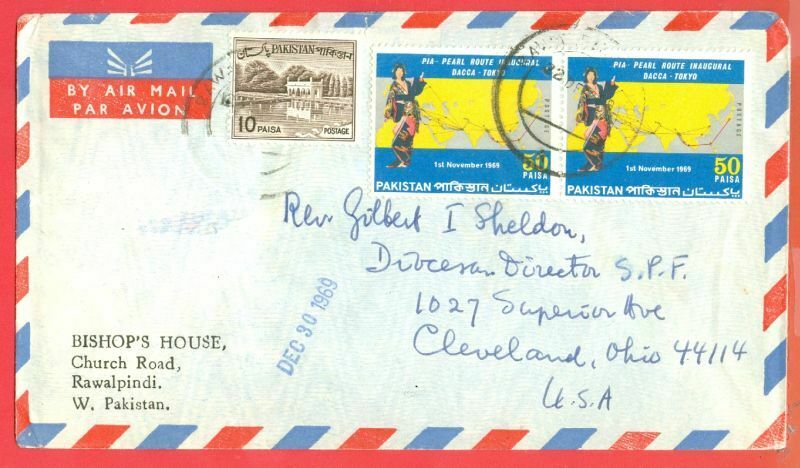 BY AIR MAIL
PAR AVION
پاکستان PAKISTAN পাকিস্তান
10 PAISA POSTAGE
PIA - PEARL ROUTE INAUGURAL
DACCA - TOKYO
POSTAGE
1st November 1969
50
PAISA
PAKISTAN পাকিস্তান پاکستان
PIA - PEARL ROUTE INAUGURAL
DACCA - TOKYO
POSTAGE
1st November 1969
50
PAISA
PAKISTAN পাকিস্তান پاکستان
Rev. Gilbert I Sheldon,
Diocesan Director S.P.F.
1027 Superior Ave
Cleveland, Ohio 44114
U.S.A
DEC 30 1969
BISHOP'S HOUSE,
Church Road,
Rawalpindi.
W. Pakistan.